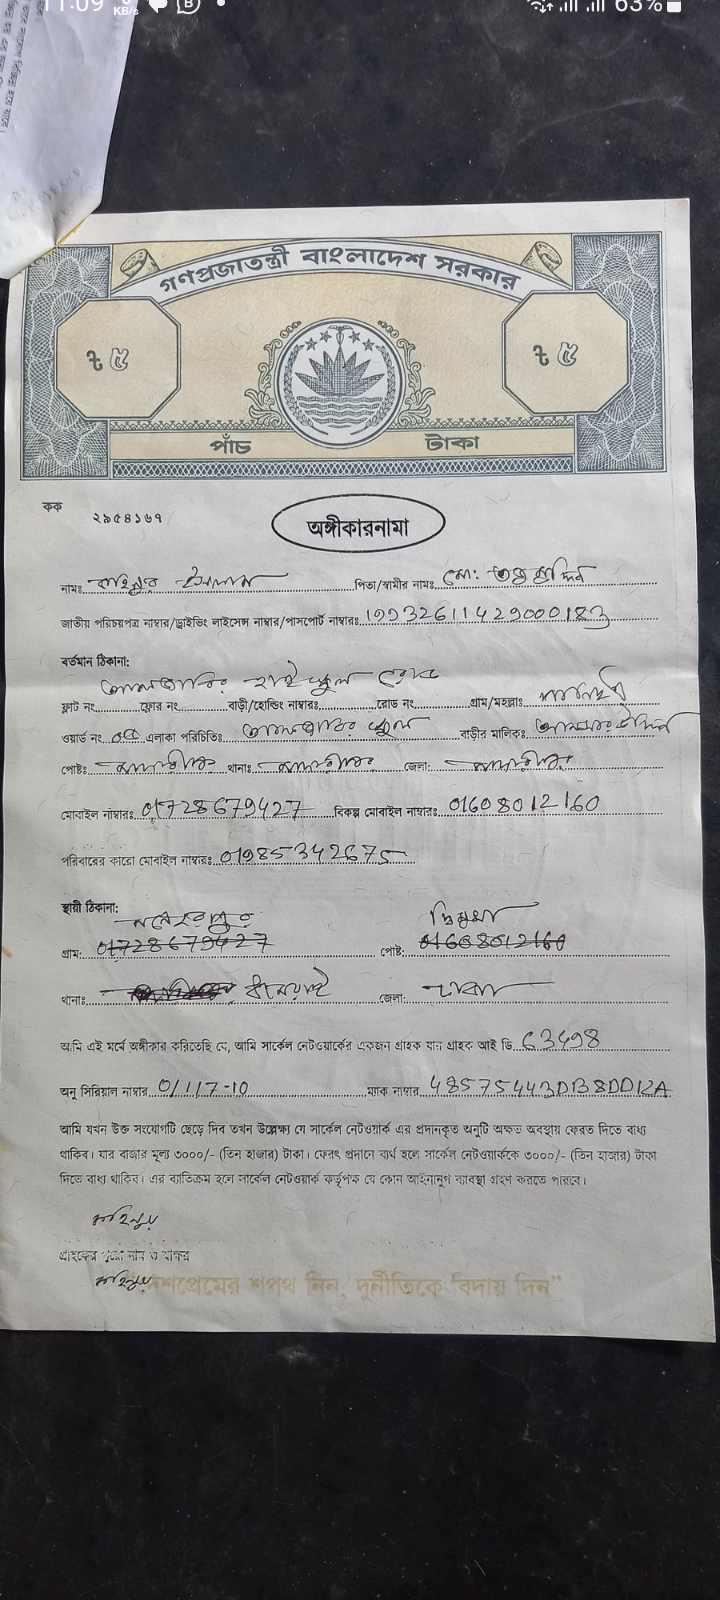 11:09 KB/s 63%
গণপ্রজাতন্ত্রী বাংলাদেশ সরকার
৳ ৫ ৳ ৫
পাঁচ টাকা
কক ২৯৫৪১৬৭
অঙ্গীকারনামা
নামঃ ইসলাম পিতা/স্বামীর নামঃ মো:
জাতীয় পরিচয়পত্র নাম্বার/ড্রাইভিং লাইসেন্স নাম্বার/পাসপোর্ট নাম্বারঃ 19932611429000183
বর্তমান ঠিকানা:
হাই স্কুল রোড
ফ্লাট নং ফ্লোর নং বাড়ী/হোল্ডিং নাম্বারঃ রোড নং গ্রাম/মহল্লাঃ
ওয়ার্ড নং ০৫ এলাকা পরিচিতিঃ স্কুল বাড়ীর মালিকঃ
পোষ্টঃ থানাঃ জেলা:
মোবাইল নাম্বারঃ 01728679427 বিকল্প মোবাইল নাম্বারঃ 01608012160
পরিবারের কারো মোবাইল নাম্বারঃ 01985342675
স্থায়ী ঠিকানা:
গ্রাম: 01728679427 পোষ্ট: 01608012160
থানাঃ ধামরাই জেলা: ঢাকা
আমি এই মর্মে অঙ্গীকার করিতেছি যে, আমি সার্কেল নেটওয়ার্কের একজন গ্রাহক যার গ্রাহক আই ডি 63498
অনু সিরিয়াল নাম্বার 0/1/7-10 ম্যাক নাম্বার 48575443DB8DD12A
আমি যখন উক্ত সংযোগটি ছেড়ে দিব তখন উল্লেক্ষ্য যে সার্কেল নেটওয়ার্ক এর প্রদানকৃত অনুটি অক্ষত অবস্থায় ফেরত দিতে বাধ্য
থাকিব। যার বাজার মূল্য ৩০০০/- (তিন হাজার) টাকা। ফেরৎ প্রদানে ব্যর্থ হলে সার্কেল নেটওয়ার্ককে ৩০০০/- (তিন হাজার) টাকা
দিতে বাধ্য থাকিব। এর ব্যতিক্রম হলে সার্কেল নেটওয়ার্ক কর্তৃপক্ষ যে কোন আইনানুগ ব্যবস্থা গ্রহণ করতে পারবে।
গ্রাহকের পুরো নাম ও স্বাক্ষর
দেশপ্রেমের শপথ নিন, দুর্নীতিকে বিদায় দিন"